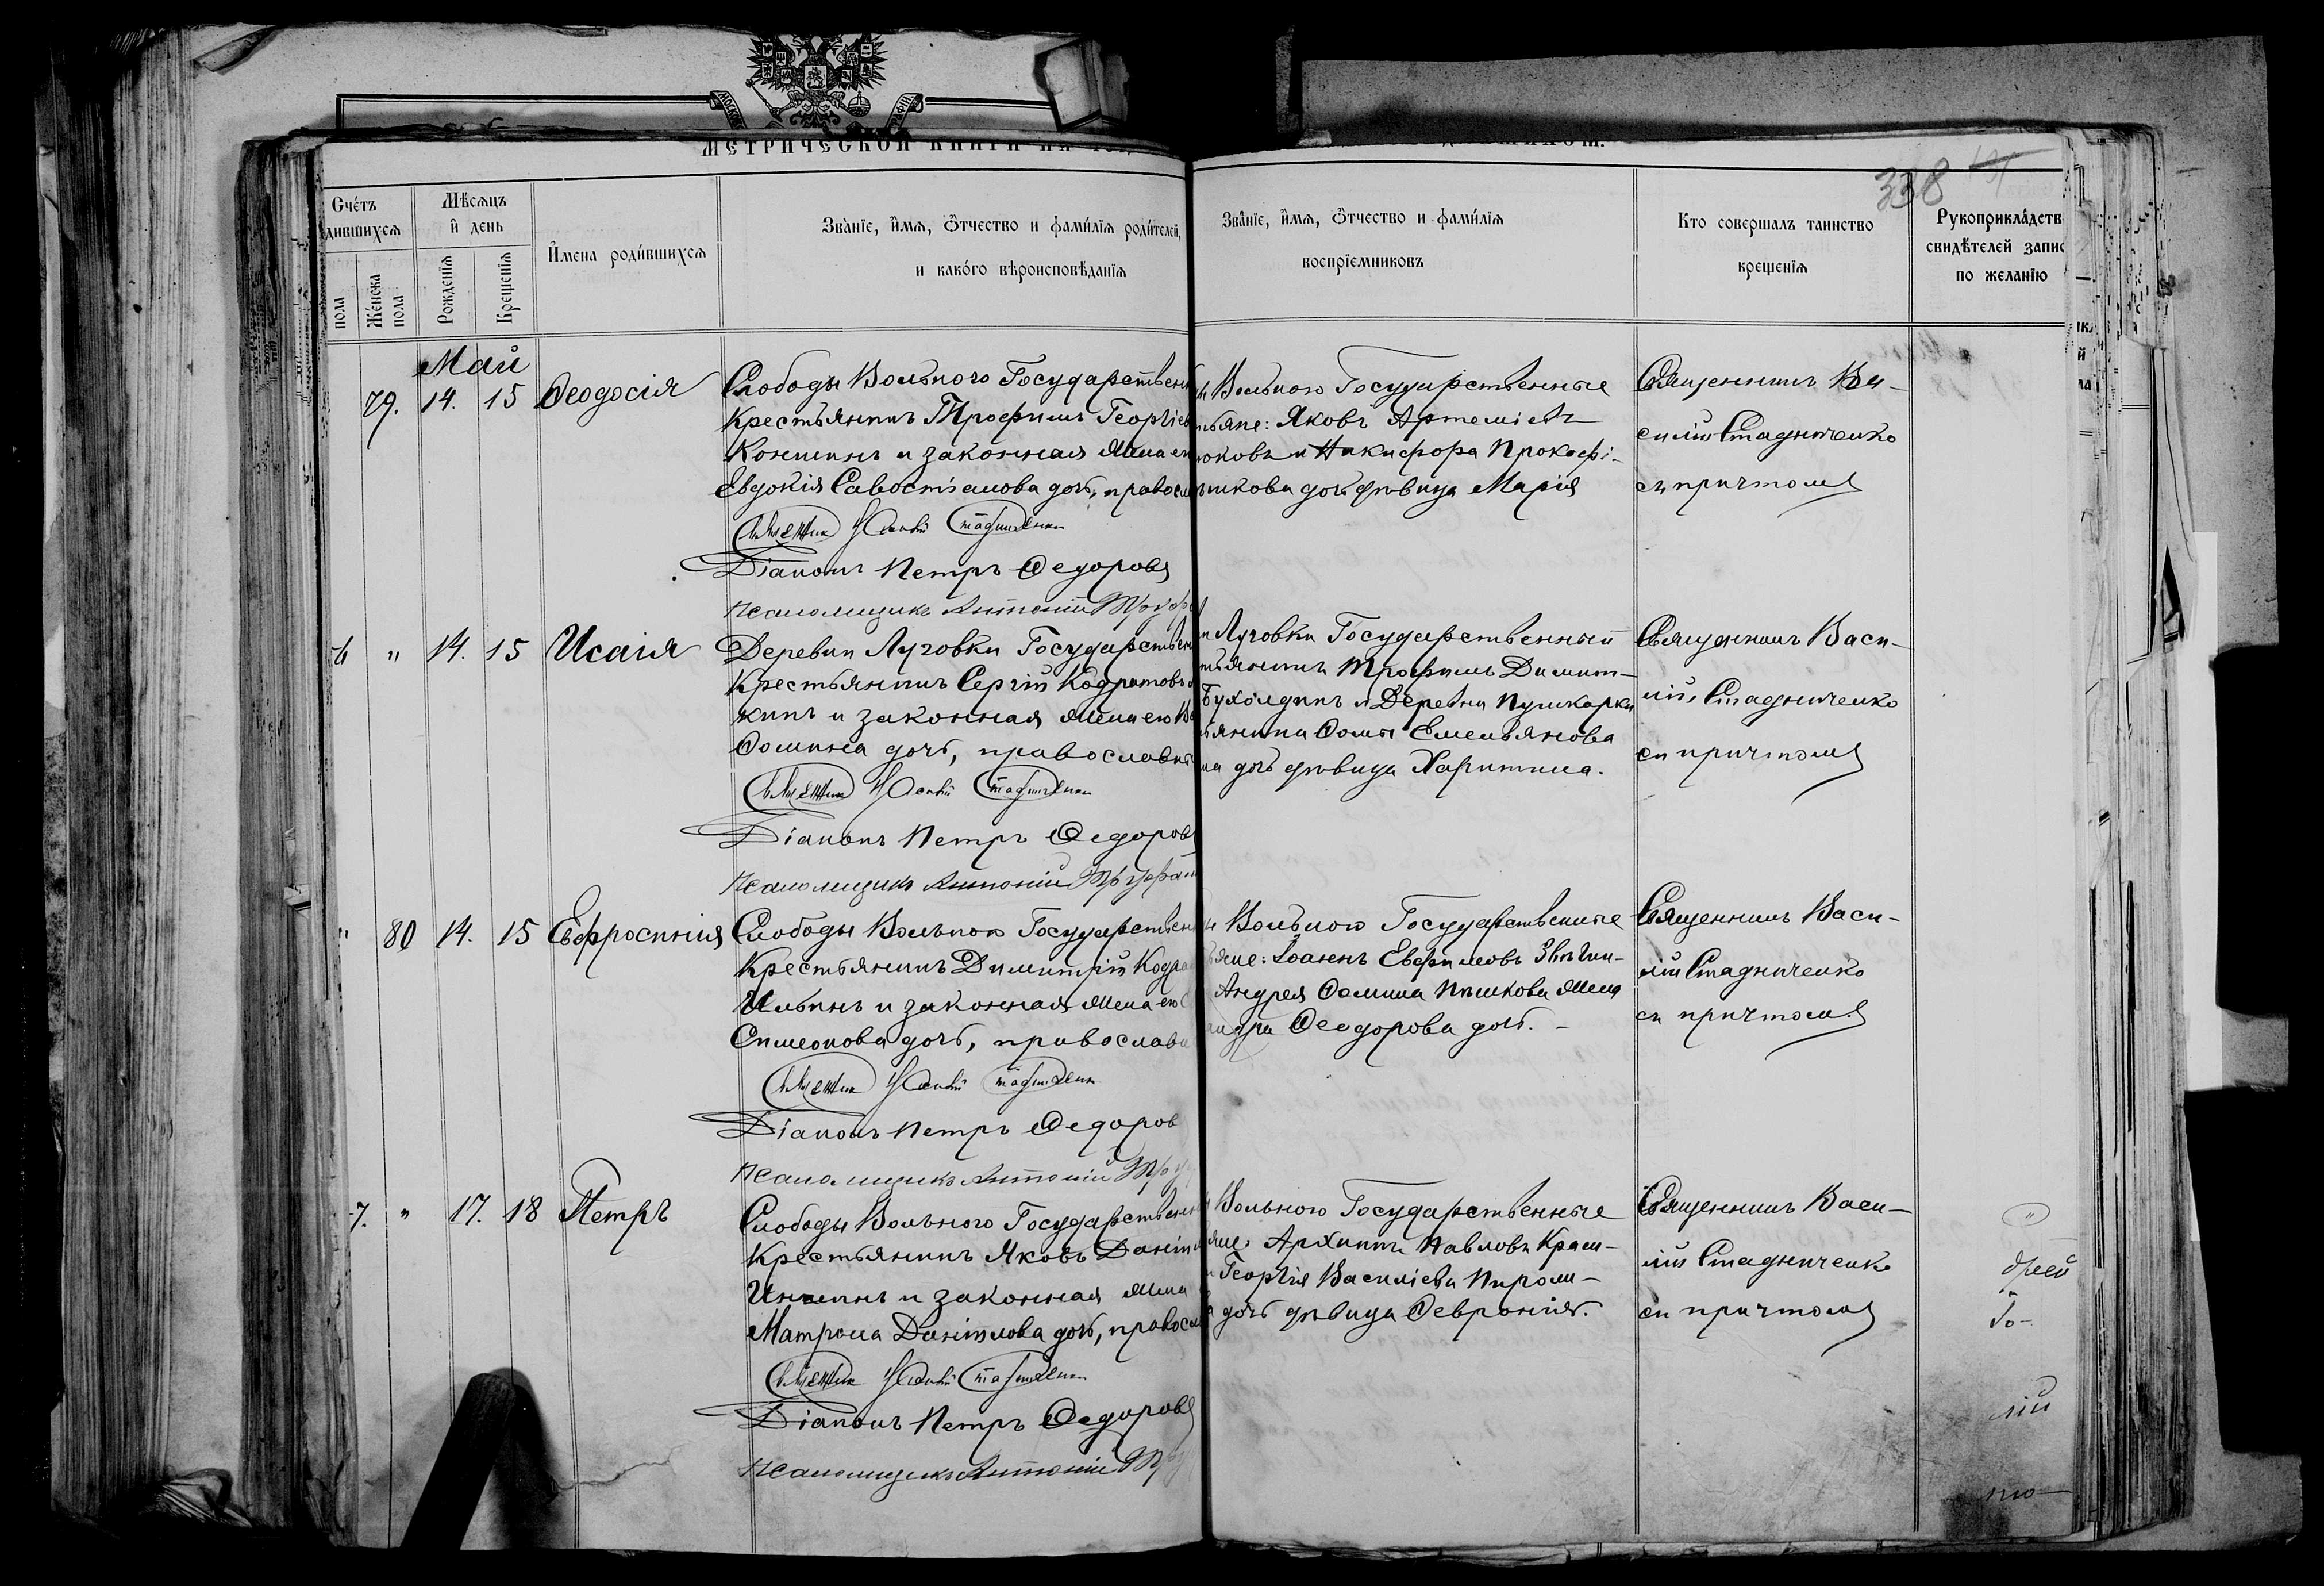 МЕТРИЧЕСКОЙ КНИГИ НА
338
Счётъ
дившихся
пола
Женска
пола
Мѣсяцъ
и день
Рожденія
Крещенія
Имена родившихся
Званіе, имя, отчество и фамилія родителей,
и какого вѣроисповѣданія
Званіе, имя, отчество и фамилія
воспріемниковъ
Кто совершалъ таинство
крещенія
Рукоприкладств
свидѣтелей запис
по желанію
Май
79. 14. 15 Ѳеодосія
Слободы Вольного Государствен
Крестьянинъ Трофимъ Георгіев
и законная жена ег
Евдокія Савостіанова дочь, правосл
Священникъ Василій Стадниченко
Діаконъ Петръ Ѳедоровъ
Псаломщикъ Антоній
Вольного Государственные
Яковъ Артеміевъ
и Никифора Прокофі-
дочь дѣвица Марія
Священникъ Ва-
силій Стадниченко
съ причтомъ
" 14. 15 Исаія
Деревни Луговки Государствен
Крестьянинъ Сергій Кодратовъ
кинъ и законная жена его
Ѳомина дочь, православны
Священникъ Василій Стадниченко
Діаконъ Петръ Ѳедоровъ
Псаломщикъ Антоній
Луговки Государственный
Трофимъ Димит-
и Деревни Пушкарки
Ѳомы Емельянова
дочь дѣвица Харитина.
Священникъ Васи-
лій Стадниченко
съ причтомъ
" 80 14. 15 Евфросинія
Слободы Вольного Государствен
Крестьянинъ Димитрій Кодра
Ильинъ и законная жена его
Симеонова дочь, православ
Священникъ Василій Стадниченко
Діаконъ Петръ Ѳедоров
Псаломщикъ Антоній
Вольного Государственные
Іоаннъ Евфимовъ
Андрея Ѳомина Пѣшкова жена
Ѳеодорова дочь.
Священникъ Васи-
лій Стадниченко
съ причтомъ
7. " 17. 18 Петръ
Слободы Вольного Государствен
Крестьянинъ Яковъ Даніи
и законная жена
Матрона Даніилова дочь, правосл
Священникъ Василій Стадниченко
Діаконъ Петръ Ѳедоровъ
Псаломщикъ Антоній
Вольного Государственные
Архипъ Павловъ
Георгія Василіева
дочь дѣвица Ѳевронія.
Священникъ Васи-
лій Стадниченко
съ причтомъ